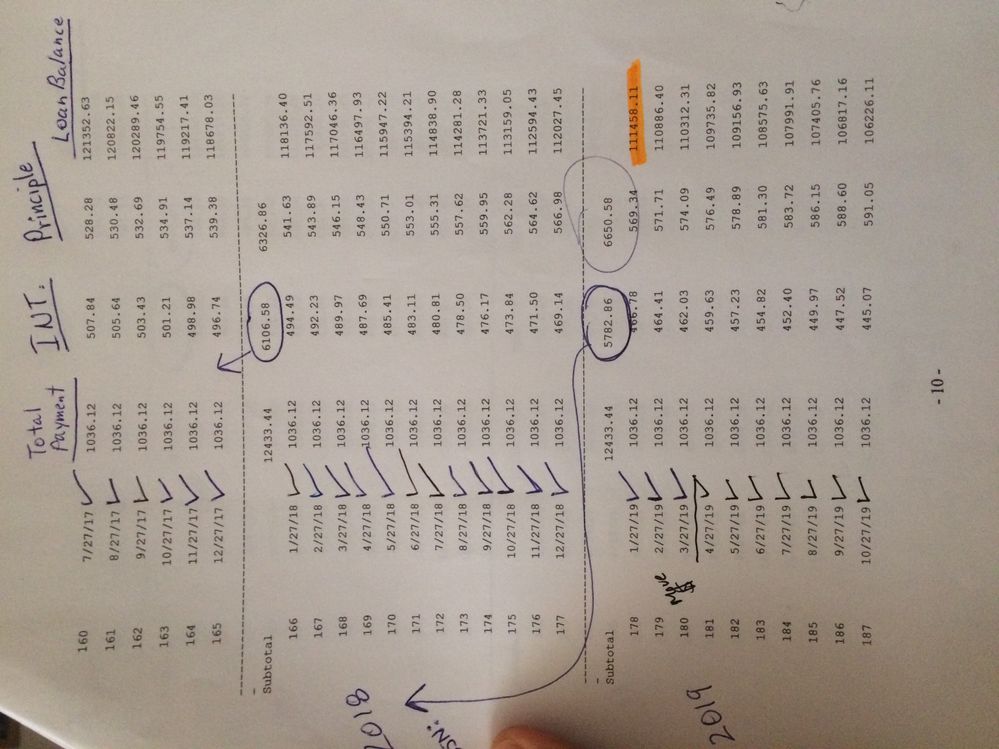 Total Payment INT. Principle Loan Balance
160 7/27/17 1036.12 507.84 528.28 121352.63
161 8/27/17 1036.12 505.64 530.48 120822.15
162 9/27/17 1036.12 503.43 532.69 120289.46
163 10/27/17 1036.12 501.21 534.91 119754.55
164 11/27/17 1036.12 498.98 537.14 119217.41
165 12/27/17 1036.12 496.74 539.38 118678.03
Subtotal 12433.44 6106.58 6326.86
166 1/27/18 1036.12 494.49 541.63 118136.40
167 2/27/18 1036.12 492.23 543.89 117592.51
168 3/27/18 1036.12 489.97 546.15 117046.36
169 4/27/18 1036.12 487.69 548.43 116497.93
170 5/27/18 1036.12 485.41 550.71 115947.22
171 6/27/18 1036.12 483.11 553.01 115394.21
172 7/27/18 1036.12 480.81 555.31 114838.90
173 8/27/18 1036.12 478.50 557.62 114281.28
174 9/27/18 1036.12 476.17 559.95 113721.33
175 10/27/18 1036.12 473.84 562.28 113159.05
176 11/27/18 1036.12 471.50 564.62 112594.43
177 12/27/18 1036.12 469.14 566.98 112027.45
2018
Subtotal 12433.44 5782.86 6650.58
178 1/27/19 1036.12 466.78 569.34 111458.11
179 2/27/19 1036.12 464.41 571.71 110886.40
180 3/27/19 1036.12 462.03 574.09 110312.31
181 4/27/19 1036.12 459.63 576.49 109735.82
182 5/27/19 1036.12 457.23 578.89 109156.93
183 6/27/19 1036.12 454.82 581.30 108575.63
184 7/27/19 1036.12 452.40 583.72 107991.91
185 8/27/19 1036.12 449.97 586.15 107405.76
186 9/27/19 1036.12 447.52 588.60 106817.16
187 10/27/19 1036.12 445.07 591.05 106226.11
2019
- 10 -